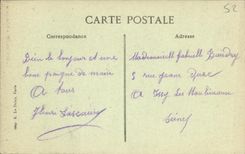 52
CARTE POSTALE
Correspondance
Adresse
Bien le bonjour et une
bonne poignée de main
à tous
Henri
Mademoiselle Gabrielle
3 rue Jeanne d'Arc
à Issy les Moulineaux
Seine